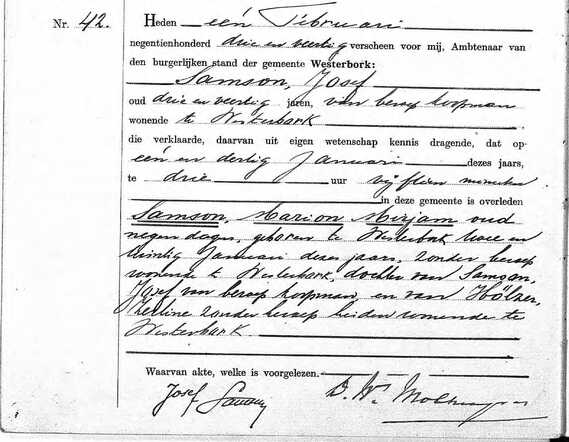 Nr. 42.
Heden eén Februari
negentienhonderd drie en veertig verscheen voor mij, Ambtenaar van
den burgerlijken stand der gemeente Westerbork:
Samson, Josef
oud drie en veertig jaren, van beroep koopman
wonende te Westerbork
die verklaarde, daarvan uit eigen wetenschap kennis dragende, dat op
eén en dertig Januari dezes jaars,
te drie uur vijftien minuten
in deze gemeente is overleden
Samson, Marion Mirjam oud
negen dagen, geboren te Westerbork twee en
twintig Januari dezes jaars, zonder beroep
wonende te Westerbork, dochter van Samson,
Josef van beroep koopman, en van Hölzer,
zonder beroep beiden wonende te
Westerbork
Waarvan akte, welke is voorgelezen.
Josef Samson